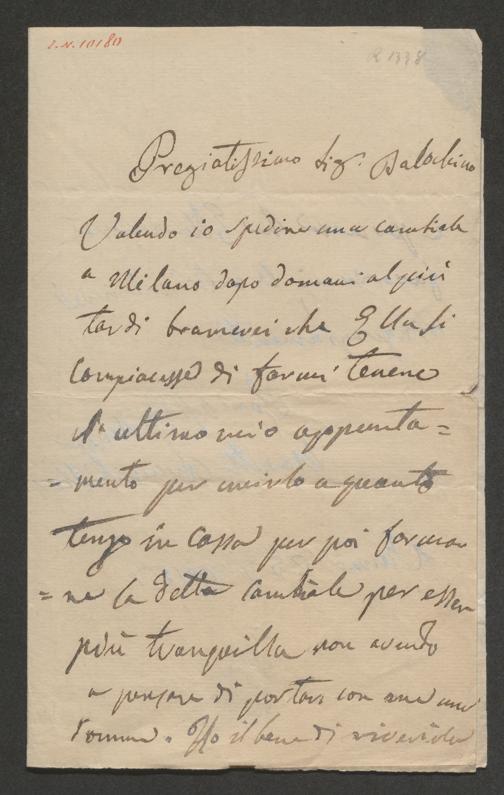 I.N. 10180
R 1338
Pregiatissimo Sig.r Balochino
Volendo io spedire una cambiale
a Milano dopo domani al più
tardi bramerei che Ella si
compiacesse di farmi tenere
l'ultimo mio appunta=
=mento per unirlo a quanto
tengo in cassa per poi forma
=re la detta cambiale per esser
più tranquilla non avendo
a pensare di portar con me una
somma. Ho il bene di riverirla